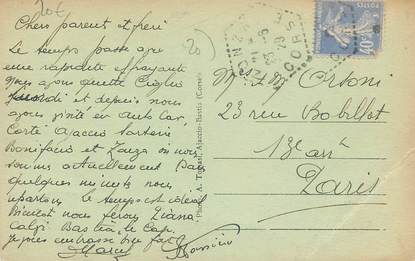 20€
Chers parent et frère
Le temps passe avec
une rapidité effrayante
nous avons quitté
et depuis nous
avons visité en auto car,
Corte Ajaccio Sartene
Bonifacio et Zonza où nous
sommes actuellement Dans
quelques minutes nous
repartons le temps est idéal
Bientôt nous ferons Piana
Calvi Bastia, le Cap.
Je vous embrasse bien fort
Marcel
20
Photo A. Tomasi, Ajaccio-Bastia (Corse)
CORSE
40
M. et Mme Orsoni
23 rue Bobillot
13e arrt
Paris